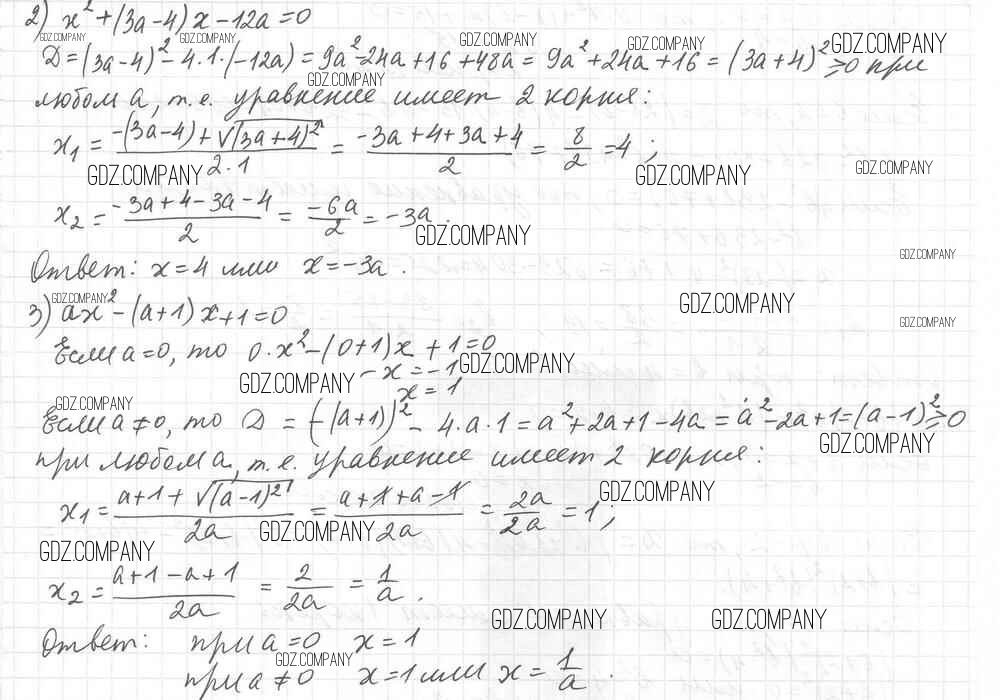 2) x² + (3a - 4) x - 12a = 0
GDZ.COMPANY GDZ.COMPANY GDZ.COMPANY GDZ.COMPANY GDZ.COMPANY
D = (3a-4)² - 4·1·(-12a) = 9a² - 24a + 16 + 48a = 9a² + 24a + 16 = (3a+4)² ≥ 0 при
GDZ.COMPANY
любом a, т.е. уравнение имеет 2 корня:
x₁ = (-(3a-4) + √(3a+4)²)/(2·1) = (-3a+4+3a+4)/2 = 8/2 = 4 ;
GDZ.COMPANY GDZ.COMPANY GDZ.COMPANY
x₂ = (-3a+4-3a-4)/2 = -6a/2 = -3a .
GDZ.COMPANY
GDZ.COMPANY
Ответ: x = 4 или x = -3a .
GDZ.COMPANY GDZ.COMPANY
3) ax² - (a+1) x + 1 = 0
GDZ.COMPANY
Если a = 0, то 0·x² - (0+1)x + 1 = 0
GDZ.COMPANY
- x = -1
GDZ.COMPANY
x = 1
GDZ.COMPANY
Если a ≠ 0, то D = (-(a+1))² - 4·a·1 = a² + 2a + 1 - 4a = a² - 2a + 1 = (a-1)² ≥ 0
GDZ.COMPANY
при любом a, т.е. уравнение имеет 2 корня:
GDZ.COMPANY
x₁ = (a+1+√(a-1)²)/2a = (a+1+a-1)/2a = 2a/2a = 1 ;
GDZ.COMPANY
GDZ.COMPANY
x₂ = (a+1-a+1)/2a = 2/2a = 1/a .
GDZ.COMPANY GDZ.COMPANY
Ответ: при a = 0 x = 1
GDZ.COMPANY
при a ≠ 0 x = 1 или x = 1/a .